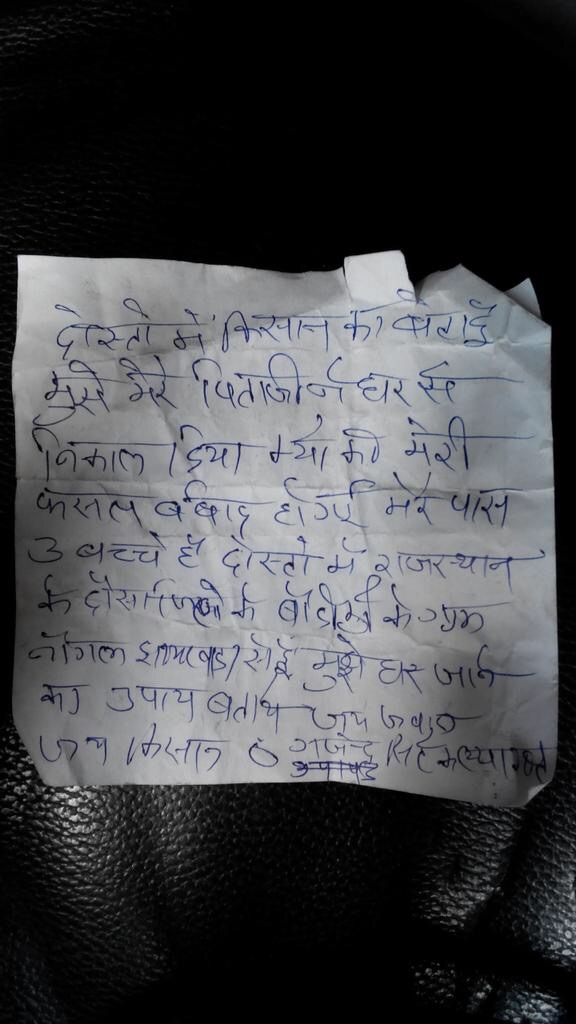 दोस्तो में किसान का बेटा हुँ
मुझे मेरे पिताजी ने घर से
निकाल दिया क्यो की मेरी
फसल बर्बाद होगई मेरे पास
3 बच्चे है दोस्तो में राजस्थान
के दौसा जिले के के ग्राम
नॉगल से हुँ मुझे घर जाने
का उपाय बताये जय जवान
जय किसान गजेन्द्र सिंह